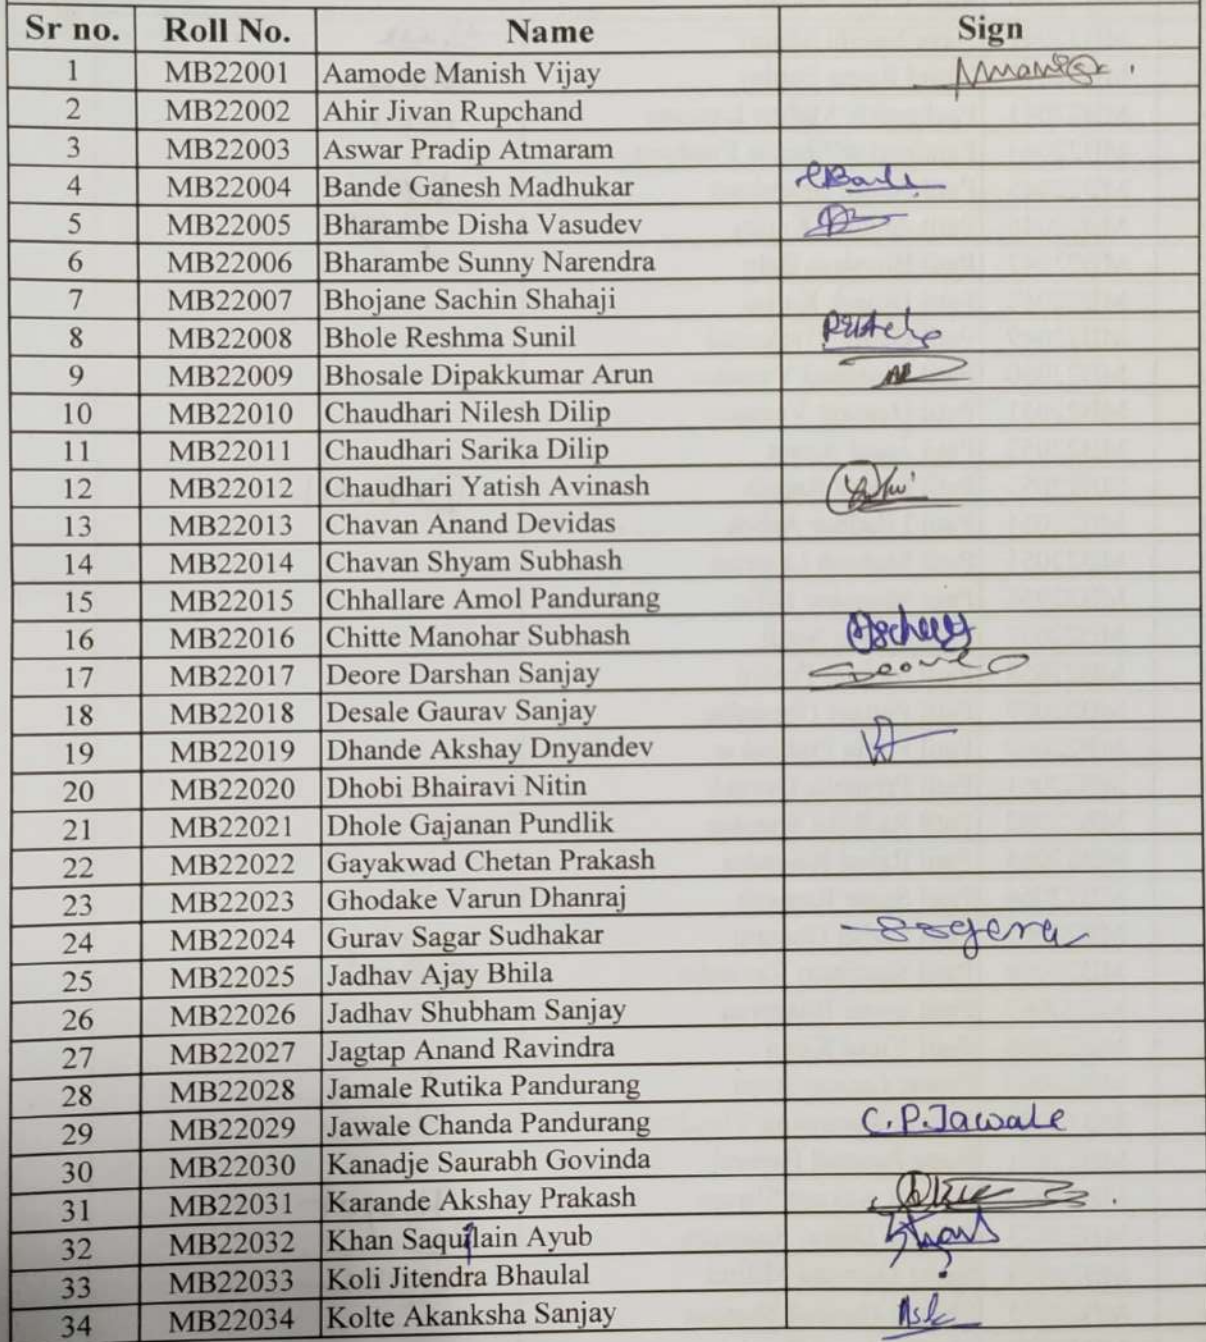 Sr no. Roll No. Name Sign
1 MB22001 Aamode Manish Vijay
2 MB22002 Ahir Jivan Rupchand
3 MB22003 Aswar Pradip Atmaram
4 MB22004 Bande Ganesh Madhukar
5 MB22005 Bharambe Disha Vasudev
6 MB22006 Bharambe Sunny Narendra
7 MB22007 Bhojane Sachin Shahaji
8 MB22008 Bhole Reshma Sunil
9 MB22009 Bhosale Dipakkumar Arun
10 MB22010 Chaudhari Nilesh Dilip
11 MB22011 Chaudhari Sarika Dilip
12 MB22012 Chaudhari Yatish Avinash
13 MB22013 Chavan Anand Devidas
14 MB22014 Chavan Shyam Subhash
15 MB22015 Chhallare Amol Pandurang
16 MB22016 Chitte Manohar Subhash
17 MB22017 Deore Darshan Sanjay
18 MB22018 Desale Gaurav Sanjay
19 MB22019 Dhande Akshay Dnyandev
20 MB22020 Dhobi Bhairavi Nitin
21 MB22021 Dhole Gajanan Pundlik
22 MB22022 Gayakwad Chetan Prakash
23 MB22023 Ghodake Varun Dhanraj
24 MB22024 Gurav Sagar Sudhakar
25 MB22025 Jadhav Ajay Bhila
26 MB22026 Jadhav Shubham Sanjay
27 MB22027 Jagtap Anand Ravindra
28 MB22028 Jamale Rutika Pandurang
29 MB22029 Jawale Chanda Pandurang C.P.Jawale
30 MB22030 Kanadje Saurabh Govinda
31 MB22031 Karande Akshay Prakash
32 MB22032 Khan Saquilain Ayub
33 MB22033 Koli Jitendra Bhaulal
34 MB22034 Kolte Akanksha Sanjay